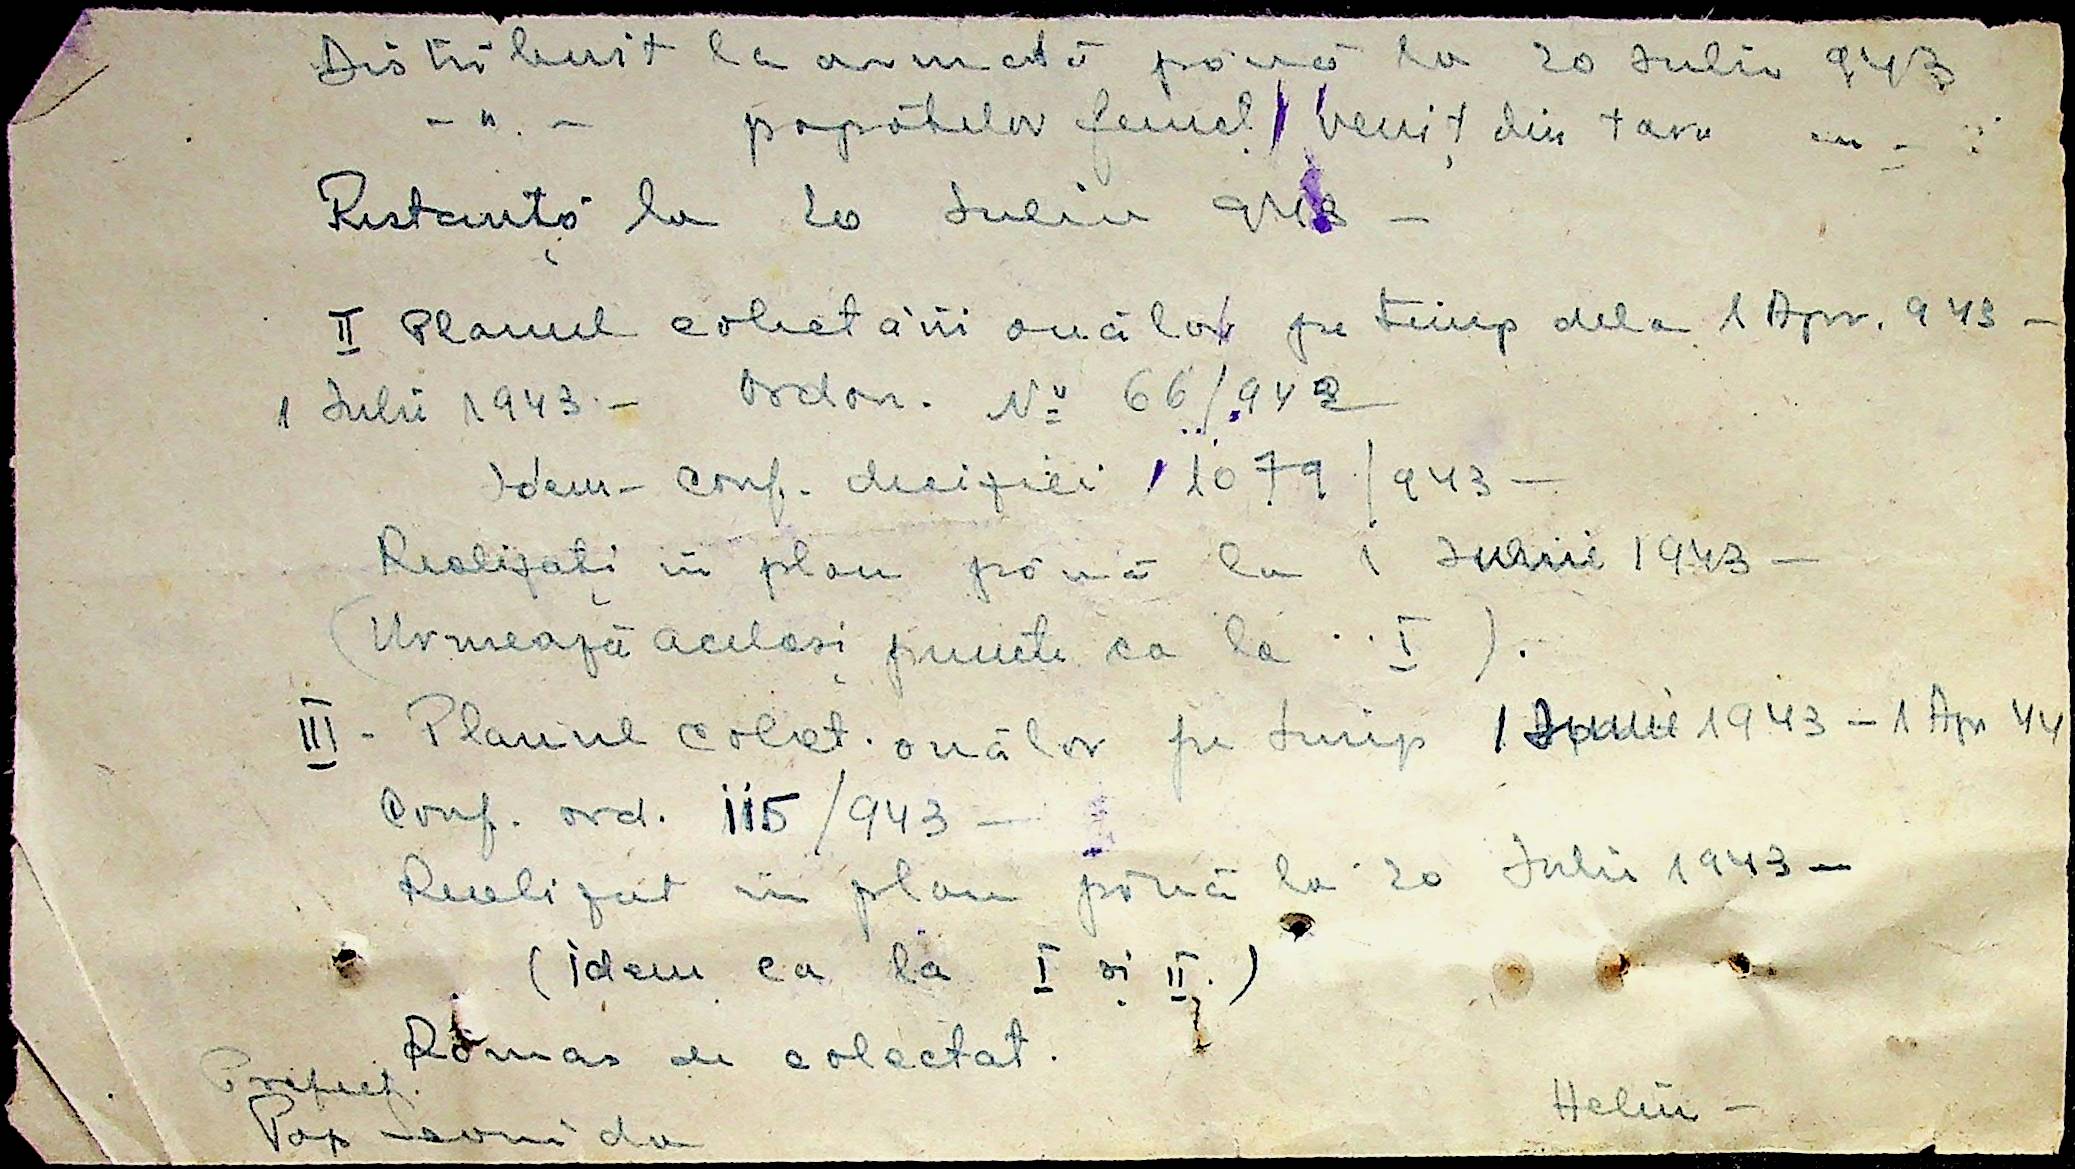 Distribuit la armată până la 20 Iulie 943
- " - popotelor funcț. veniț din țara
Restanță la 20 Iulie 943 -
II Planul colectării ouălor pe timp dela 1 Apr. 943 -
1 Iulie 1943 - Ordon. Nº 66/942
Idem - conf. deciziei 1079/943 -
Realizați în plan până la 1 Iunie 1943 -
(Urmează aceleași puncte ca la I).
III - Planul colect. ouălor pe timp 1 Iunie 1943 - 1 Apr 44
Conf. ord. 115/943 -
Realizat în plan până la 20 Iulie 1943 -
(idem ca la I și II.)
Rămas de colectat.
Prefect.
Pop Leonida